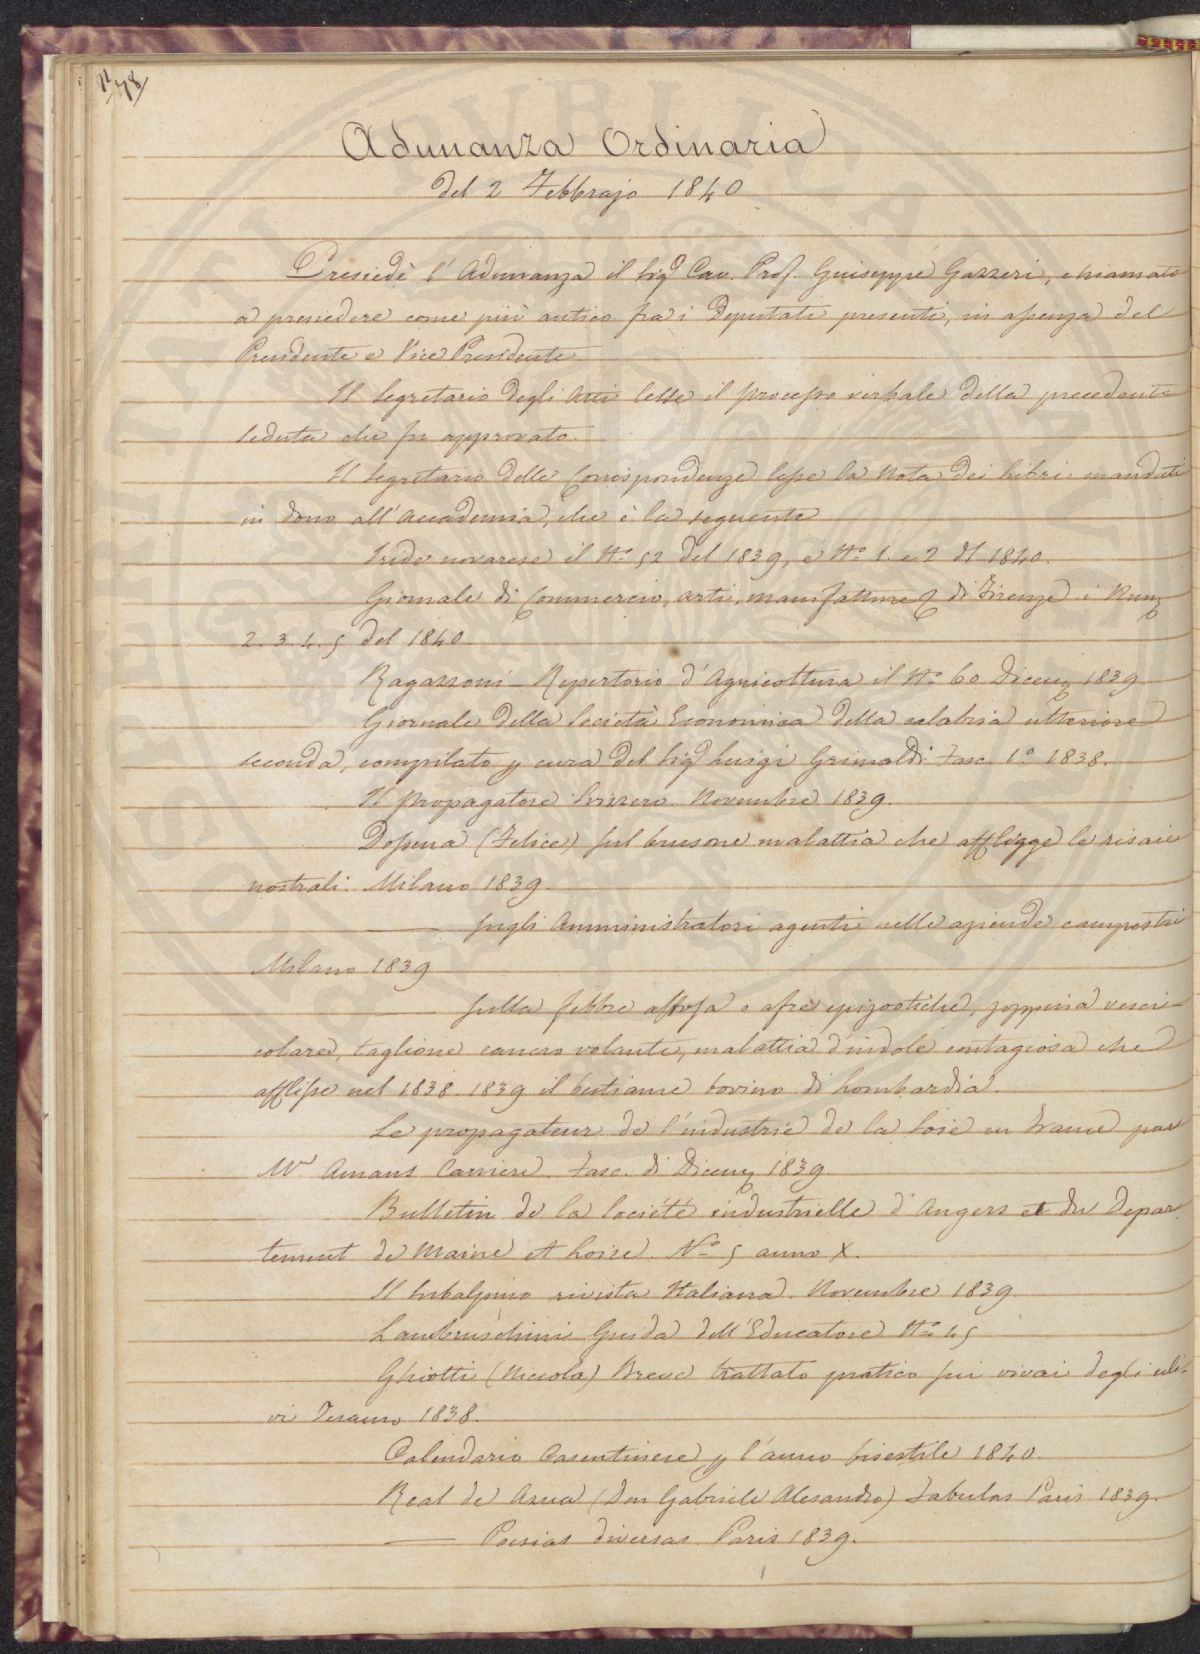 78
Adunanza Ordinaria
del 2 Febbrajo 1840
Presiedè l'Adunanza il Sigr Cav. Prof. Giuseppe Gazzeri, chiamato
a presiedere come più antico fra i Deputati presenti, in assenza del
Presidente e Vice Presidente
Il Segretario degli Atti lesse il processo verbale della precedente
seduta che fu approvato.
Il Segretario delle Corrispondenze lesse la Nota dei Libri mandati
in dono all'Accademia, che è la seguente
Iride novarese il No 52 del 1839, e No 1. e 2 del 1840.
Giornale di Commercio, arti, manifatture di Firenze i Num
2. 3. 4. 5 del 1840.
Ragazzoni - Repertorio d'Agricoltura il No 60 Dicem 1839
Giornale della Società Economica della calabria ulteriore
seconda, compilato p cura del Sigr Luigi Grimaldi Fasc. 1o 1838.
Il Propagatore Svizzero. Novembre 1839.
Dossena (Felice) sul brusone malattia che affligge le risaie
nostrali. Milano 1839.
— sugli Amministratori agenti nelle aziende campestri
Milano 1839
— sulla febbre aftosa o afre epizootiche, zoppina vesci-
colare, taglione cancro volante, malattia d'indole contagiosa che
afflisse nel 1838. 1839 il bestiame bovino di Lombardia.
Le propagateur de l'industrie de la Soie en France par
Mr Amans Carriere. Fasc. di Dicem 1839.
Bulletin de la Société industrielle d'Angers et du Depar
tement de Maine et Loire. No 5 anno X.
Il Subalpino rivista Italiana. Novembre 1839.
Lambruschini Guida dell'Educatore No 45
Ghiotti (Niccola) Breve trattato pratico sui vivai degli uli-
vi Teramo 1838.
Calendario Casentinese p l'anno bisestile 1840.
Real de Azua (Don Gabriele Alesandro) Fabulas Paris 1839.
— Poesias diversas Paris 1839.